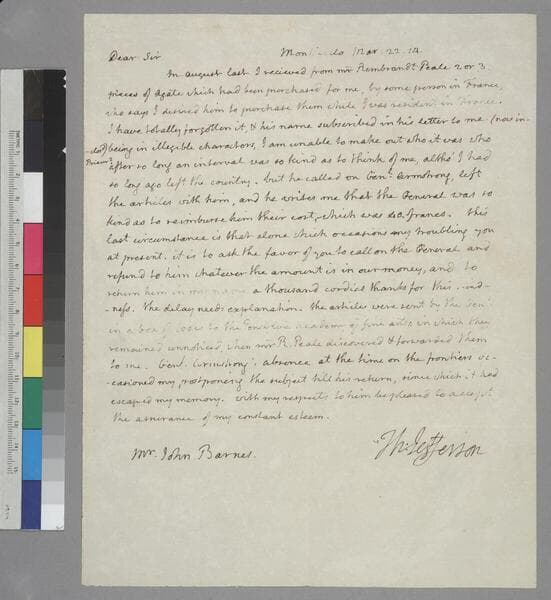 Dear Sir Mar. 22. 14.
In august last I recieved from mr Rembrandt Peale 2 or 3
pieces of agate which had been purchased for me, by some person in France,
who says I desired him to purchase them while I was resident in France.
I have totally forgotten it, & his name subscribed in his letter to me
being in illegible characters, I am unable to make out who it was who
after so long an interval was so kind as to think of me, altho' I had
so long ago left the country. but he called on Genl. Armstrong, left
the articles with him, and he writes me that the General was so
kind as to reimburse him their cost, which was francs. this
last circumstance is that alone which occasions my troubling you
at present. it is to ask the favor of you to call on the General and
refund to him whatever the amount is in our money, and to
return him in my name a thousand cordial thanks for this kind-
ness. the delay needs explanation. the articles were sent by the
in a box to the academy of fine arts, in which they
remained unnoticed when mr R. Peale discovered & forwarded them
to me. Genl. Armstrong's absence at the time on the frontiers oc-
casioned my postponing the subject till his return, since which it had
escaped my memory. with my respects to him be pleased to accept
the assurance of my constant esteem.
Th: Jefferson
Mr. John Barnes.